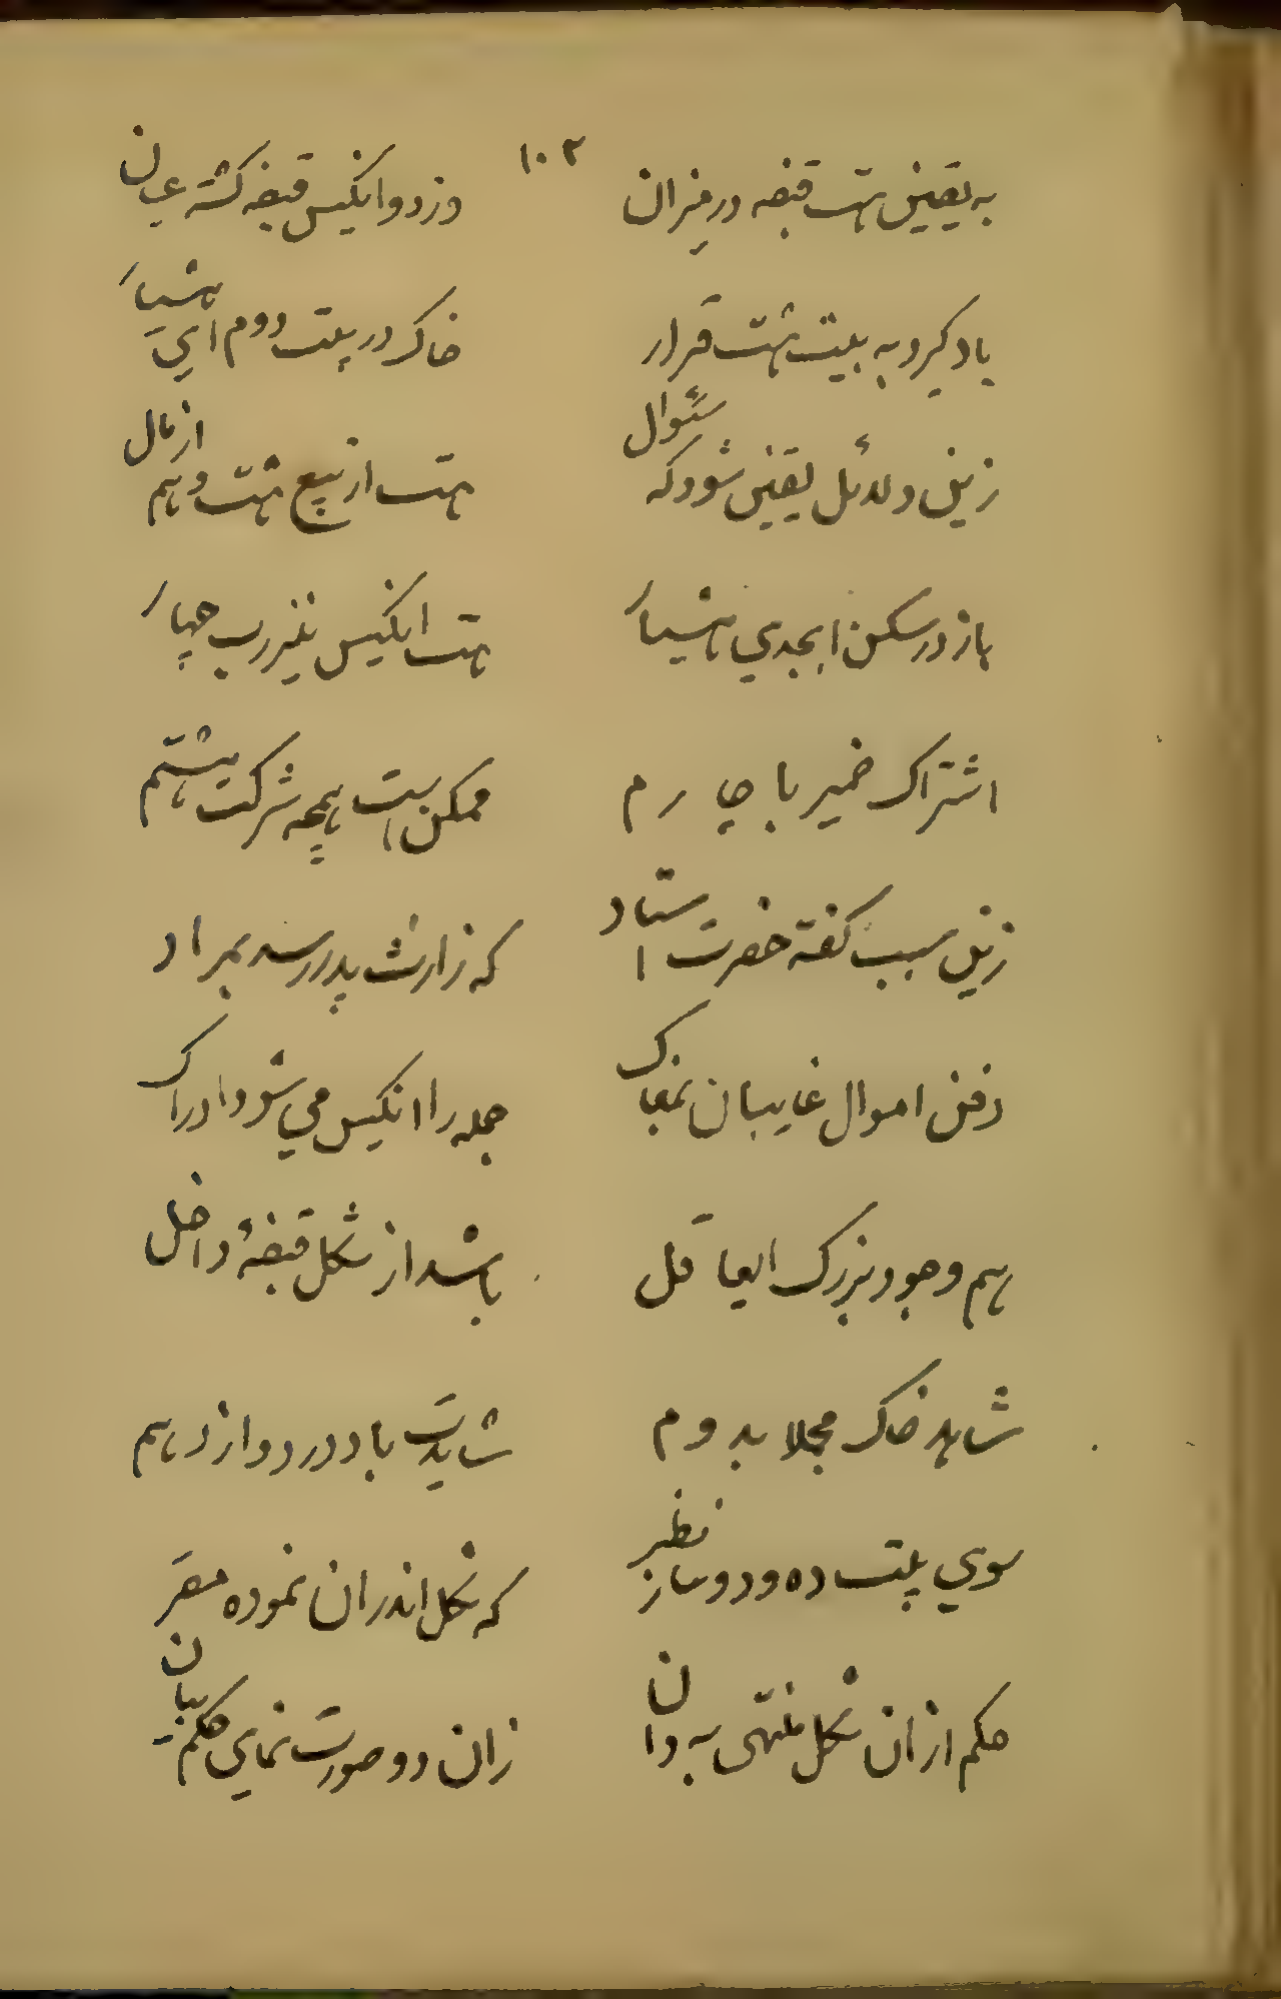 ۱۰۲
به یقین هست قبضه در میزان
وز دو انکیس قبضه کشته عیان
باد کیرد به بیت هشت قرار
خاک در بیت دوم ای هشیار
زین دلائل یقین شود که سئوال
هست از بیع هشت و هم از مال
باز در سکن ابجدی هشیار
هست انکیس نیز رب چهار
اشتراک ضمیر با چارم
ممکن است بهمچه شرکت هشتم
زین سبب کفته حضرت استاد
که ز ارث پدر رسد بمراد
دفن اموال غایبان بمغاک
جمله را انکیس می شود ادراک
هم وجود بزرک ایعاقل
باشد از شکل قبضهٔ داخل
شاهد خاک مجلا بدوم
شایدت باد در دوازدهم
سوی بیت ده و دو ساز نظر
که شکل اندران نموده مقر
حکم از ان شکل منتهی به دان
زان دو صورت نمای حکم بیان